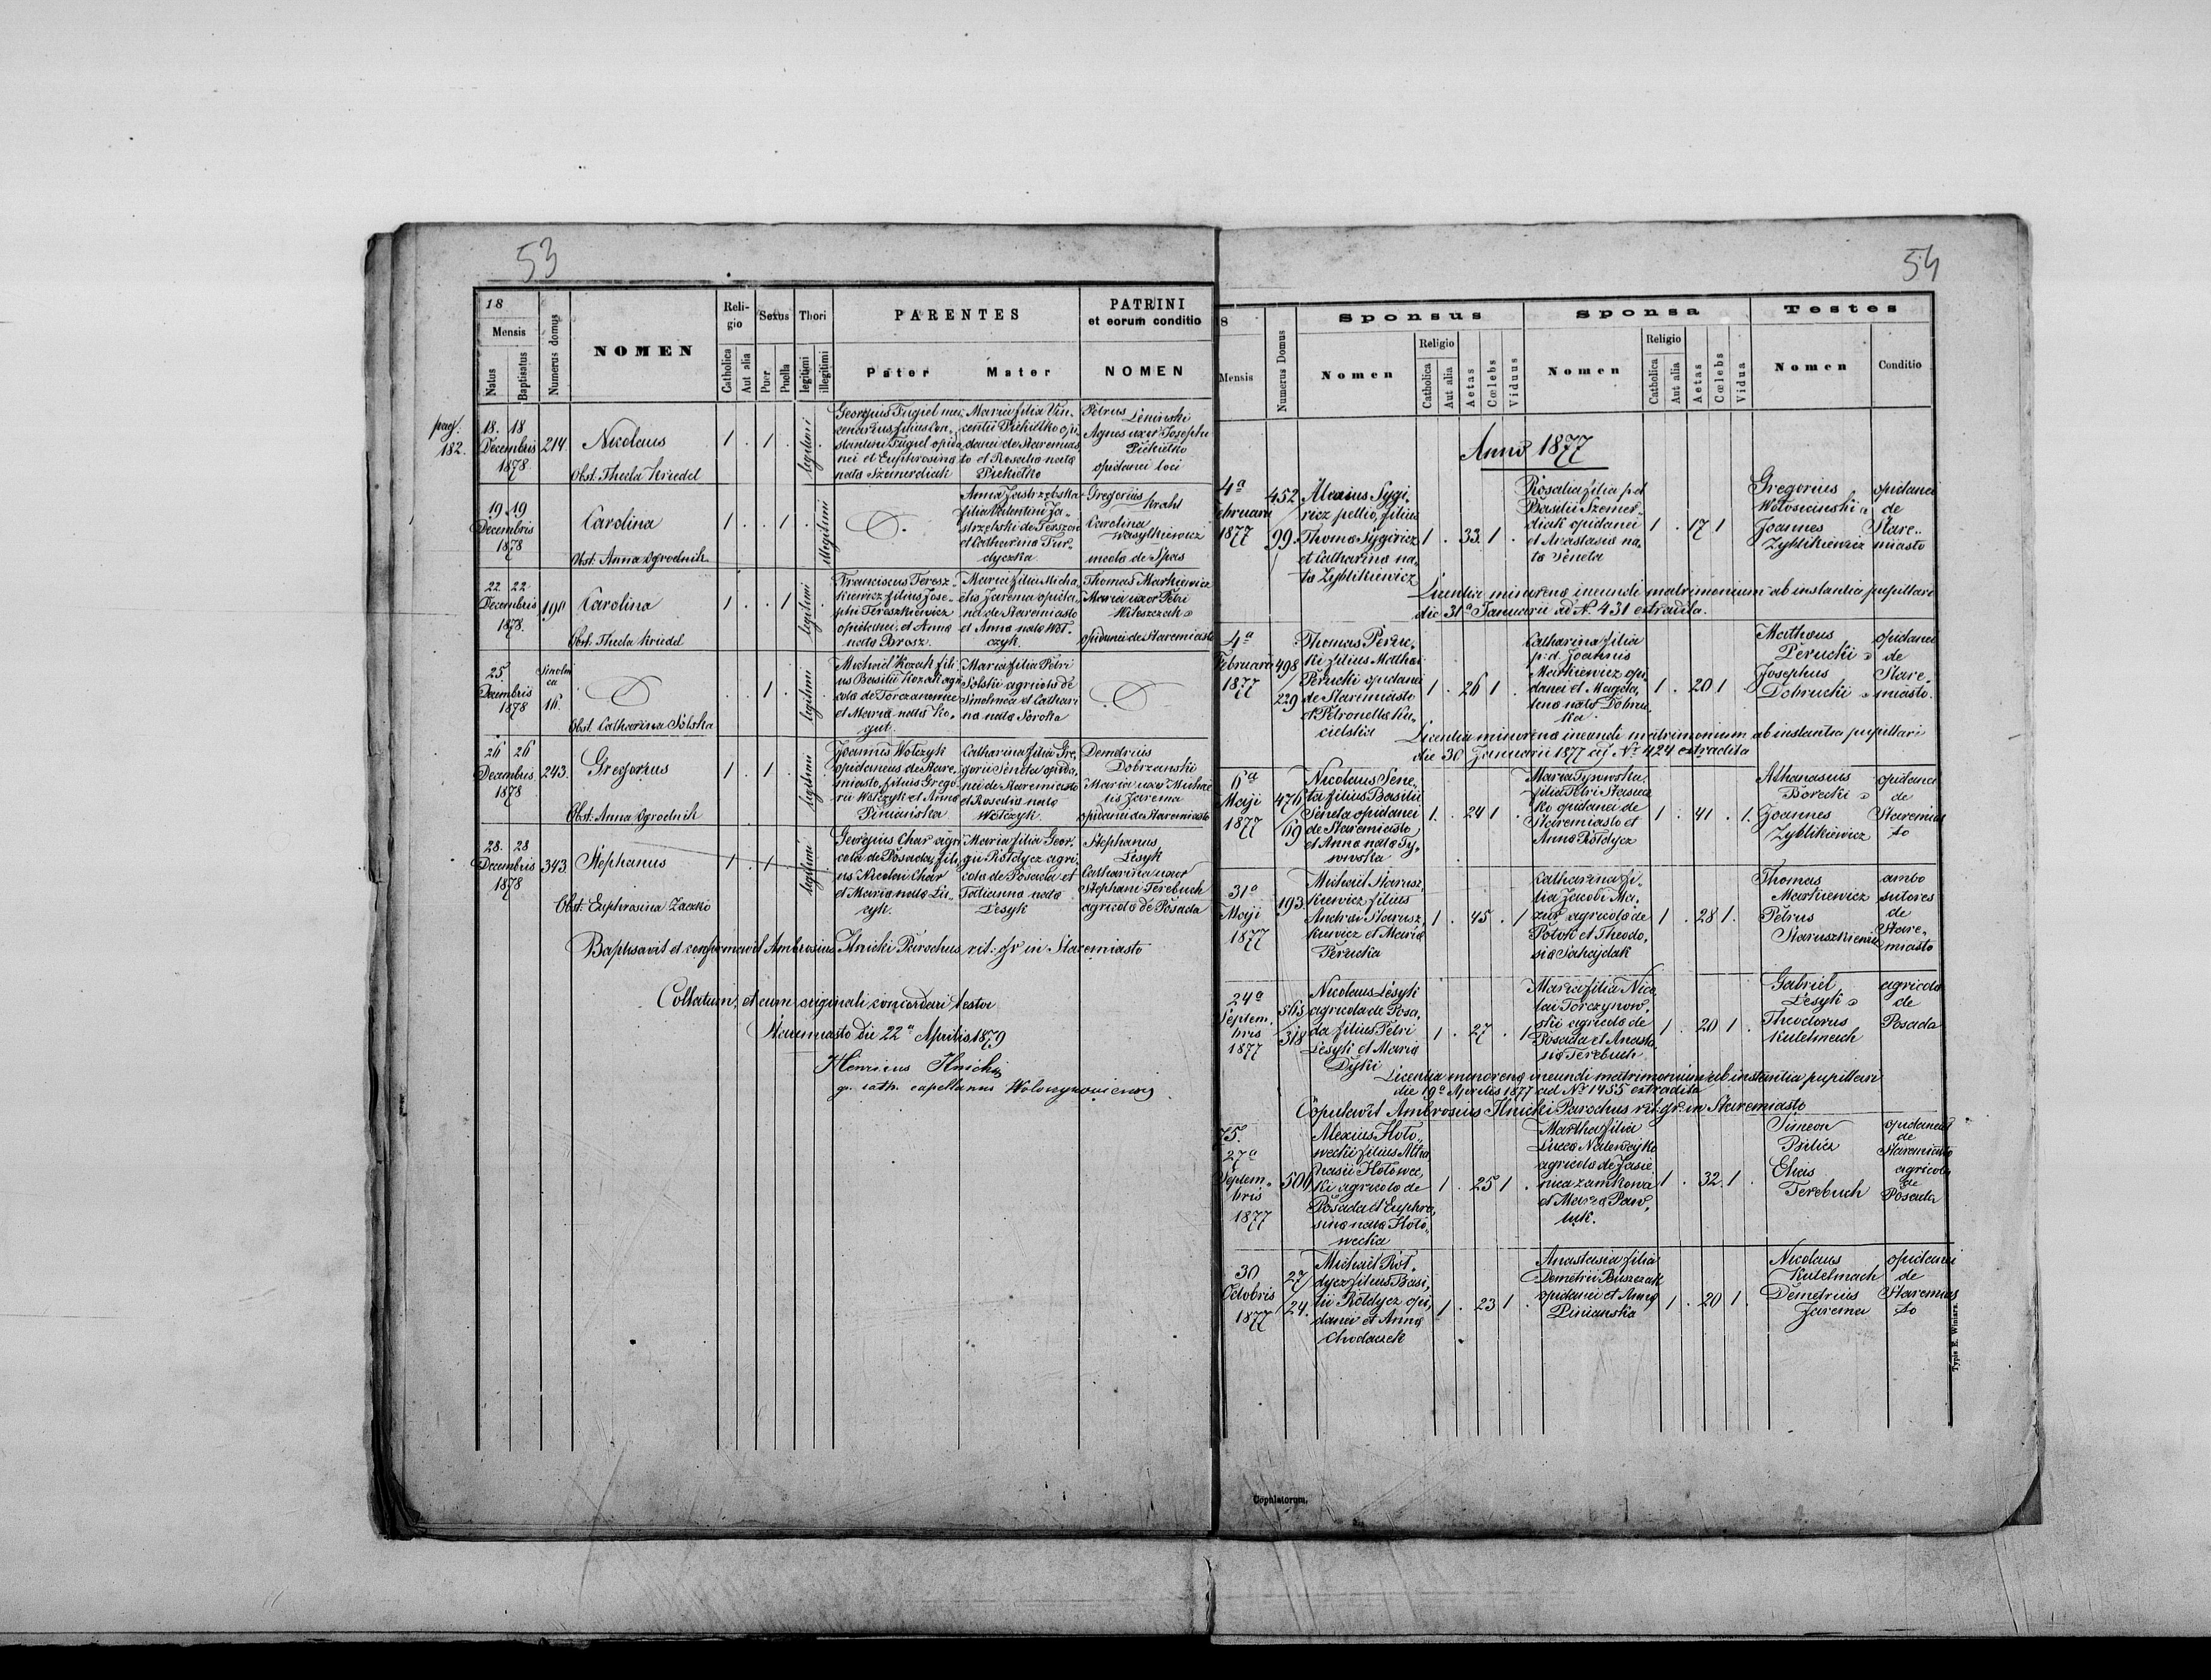 53
18
Mensis
Natus
Baptisatus
Numerus domus
NOMEN
Reli-
gio
Catholica
Aut alia
Sexus
Puer
Puella
Thori
legitimi
illegitimi
PARENTES
Pater
Mater
PATRINI
et eorum conditio
NOMEN
pag.
182.
18. 18
Decembris
1878.
214.
Nicolaus
Obst. Thecla Kriedel
1 . 1 .
legitimi
Georgius Fugiel mer
cenarius filius Con-
stantini Fugiel opida
nei et Euphrosina
nata Szemerdiak
Maria filia Vin-
centii Piekiełko opi-
danei de Staremias
to et Rosalia nata
Piekiełko
Petrus
Leniwski
Agnes uxor Josephi
Piekiełko
opidanei loci
19. 19
Decembris
1878
Carolina
Obst. Anna Ogrodnik
1 . . 1 .
illegitimi
Anna Jastrzębska
filia Valentini Ja-
strzębski de Terszow
et Catharina Tur-
dyczka.
Gregorius
Krahl
Carolina
Wasylkiewicz
incola de Spas
22. 22
Decembris
1878.
190
Carolina
Obst. Thecla Kriedel
1 . . 1
legitimi
Franciscus Teresz-
kiewicz filius Jose-
phi Tereszkiewicz
opidanei, et Anna
nata Brosz.
Maria filia Micha-
elis Jarema opida-
nei de Staremiasto
et Anna nata Woł-
czyk.
Thomas Markiewicz
Maria uxor Petri
Witoszczak
opidanei de Staremiasto
25.
Decembris
1878
Smolni
ca
16.
Obst. Catharina Solska
. . 1 .
legitimi
Michael Kozak fili-
us Basilii Kozak agri
cola de Torczanowice
et Maria nata Ko-
gut.
Maria filia Petri
Solski agricola de
Smolnica et Cathari
na nata Soroka
26 26
Decembris
1878
243.
Gregorius
Obst: Anna Ogrodnik
1 . 1 .
legitimi
Joannes Wołczyk
opidaneus de Stare-
miasto, filius Grego-
rii Wołczyk et Anna
Piniańska
Catharina filia Gre-
gorii Seneta opida-
nei de Staremiasto
et Rosalia nata
Wołczyk.
Demetrius
Dobrzanski
Maria uxor Michae
lis Jarema
opidanei de Staremiasto
28. 28
Decembris
1878
343.
Stephanus
Obst: Euphrosina Zaczko
1 . 1 .
legitimi
Georgius Char agri
cola de Posada, fili-
us Nicolai Char
et Maria nata Łu-
cyk.
Maria filia Geor-
gii Rołdycz agri-
cola de Posada et
Tatianna nata
Lesyk
Stephanus
Lesyk
Catharina uxor
Stephani Terebuch
agricola de Posada
Baptisavit et confirmavit Ambrosius Ilnicki Parochus rit: gr in Staremiasto
Collatum, et cum originali concordari testor
Staremiasto die 22a Aprilis 1879
Henricus Ilnicki
gr. cath. capellanus
54
8
Mensis
Numerus Domus
Sponsus
Nomen
Religio
Catholica
Aut alia
Aetas
Cœlebs
Viduus
Sponsa
Nomen
Religio
Catholica
Aut alia
Aetas
Cœlebs
Vidua
Testes
Nomen
Conditio
Anno 1877
4a
Februarii
1877
452
99.
Alexius Sygi-
ricz pellio, filius
Thoma Sygiricz
et Catharina na-
ta Zyblikiewicz
1 . 33. 1 .
Rosalia filia p.d.
Basilii Szemer-
diak opidanei
et Anastasia na-
ta Seneta
1 . 17 1
Gregorius
Wołosiański
Joannes
Zyblikiewicz
opidanei
de
Stare-
miasto
Licentia minorena ineundi matrimonium ab instantia pupillari
die 31a Januarii ad N. 431 extradita.
4a
Februarii
1877
498
229
Thomas Peruc-
ki filius Mathaei
Perucki opidanei
de Staremiasto
et Petronella Ku-
cielska
1 . 26 1 .
Catharina filia
p: d. Joannis
Markiewicz opi
danei et Magda-
lena nata Dobruc-
ka
1 . 20 1
Mathaeus
Perucki
Josephus
Dobrucki
opidanei
de
Stare-
miasto.
Licentia minorena ineundi matrimonium ab instantia pupillari
die 30 Januarii 1877 ad Nr 424 extradita
6a
Maji
1877
476
69
Nicolaus Sene-
ta filius Basilii
Seneta opidanei
de Staremiasto
et Anna nata Ty-
sowska
1. . 24 1 .
Maria Tysowska
filia Petri Stasiec
ko opidanei de
Staremiasto et
Anna Rołdycz
1 . 41 . 1.
Athanasius
Borecki
Joannes
Zyblikiewicz
opidanei
de
Staremias
to
31a
Maji
1877
193.
Michael Starusz-
kiewicz filius
Andreae Starusz-
kiewicz et Maria
Perucka
1 . 45 . 1
Catharina fi-
lia Jacobi Ma-
zur agricola de
Potok et Theodo-
sia Sahajdak
1 . 28 1.
Thomas
Markiewicz
Petrus
Staruszkiewicz
ambo
sutores
de
Stare-
miasto
24a
Septem-
bris
1877
565
318
Nicolaus Lesyk
agricola de Posa-
da filius Petri
Lesyk et Maria
Dyki
1 . 27 . 1
Maria filia Nico-
lai Torczynow-
ski agricola de
Posada et Anasta-
sia Terebuch
1 . 20 1 .
Gabriel
Lesyk
Theodorus
Kutelmach
agricola
de
Posada
Licentia minorena ineundi matrimonium ab instantia pupillari
die 19a Aprilis 1877 ad Nr 1455 extradita
Copulavit Ambrosius Ilnicki Parochus rit. gr. in Staremiasto
75.
27a
Septem-
bris
1877
506
Alexius Hoło-
wecki filius Atha
nasii Hołowec-
ki agricola de
Posada et Euphro-
sina nata Hoło-
wecka
1 . 25 1 .
Martha filia
Lucae Nalewajko
agricola de Jasie
nica zamkowa
et Maria Paw-
luk.
1 . 32 1 .
Simeon
Bilicz
Elias
Terebuch
opidaneus
de
Staremiasto
agricola
de
Posada
30
Octobris
1877
27
24.
Michael Roł-
dycz filius Basi-
lii Rołdycz opi-
danei et Anna
Chodaczek
1 . 23 1 .
Anastasia filia
Demetrii Buszczak
opidanei et Anna
Piniańska
1 . 20 1 .
Nicolaus
Kutelmach
Demetrius
Jarema
opidanei
de
Staremias
to
Typis E. Winiarz.
Copulatorum.